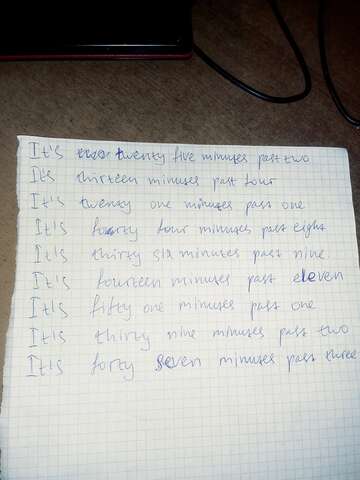 It's twenty five minutes past two
It's thirteen minutes past four
It's twenty one minutes past one
It's forty four minutes past eight
It's thirty six minutes past nine
It's fourteen minutes past eleven
It's fifty one minutes past one
It's thirty nine minutes past two
It's forty seven minutes past three